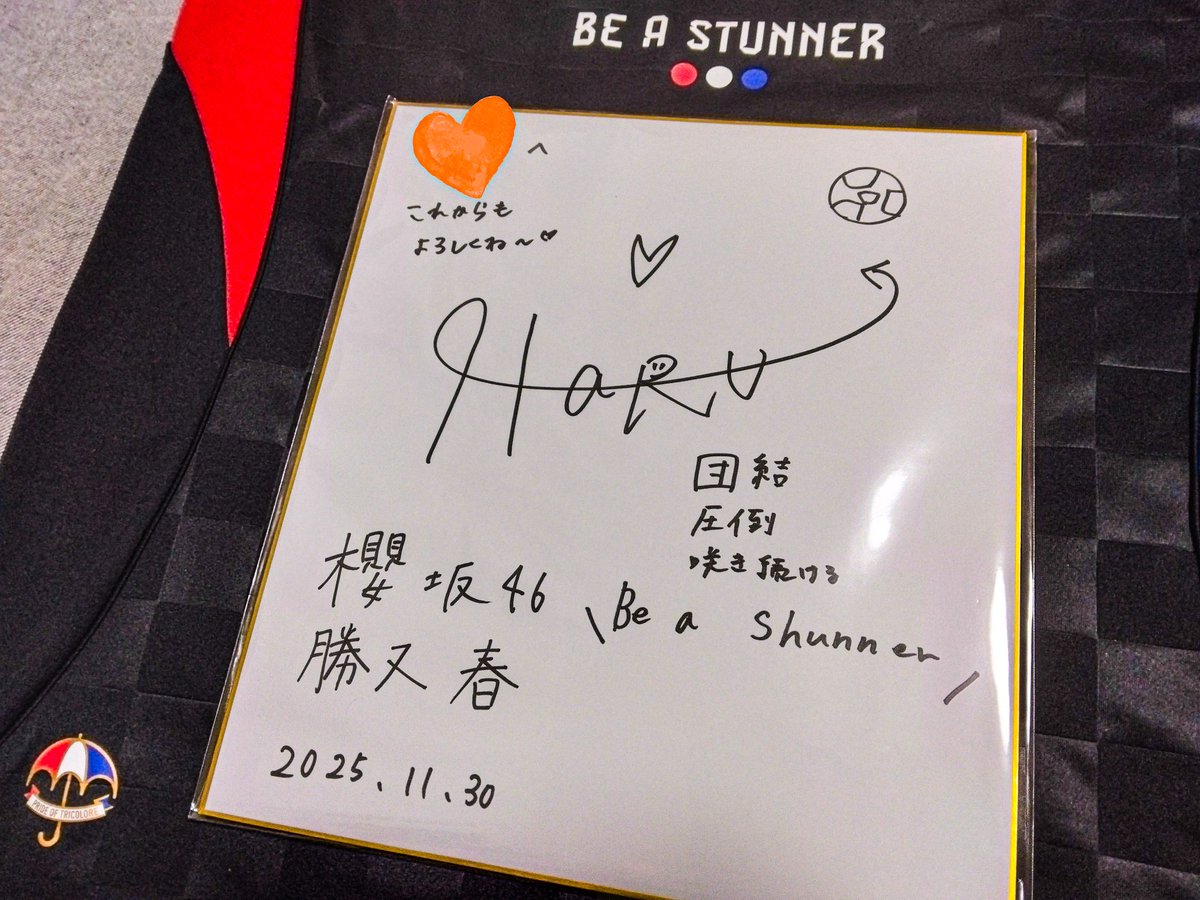 BE A STUNNER
へ
これからも
よろしくね~♡
HaRu
団結
圧倒
咲き続ける
櫻坂46
\Be a Shunner/
勝又春
2025.11.30
PRIDE OF TRICOLORE